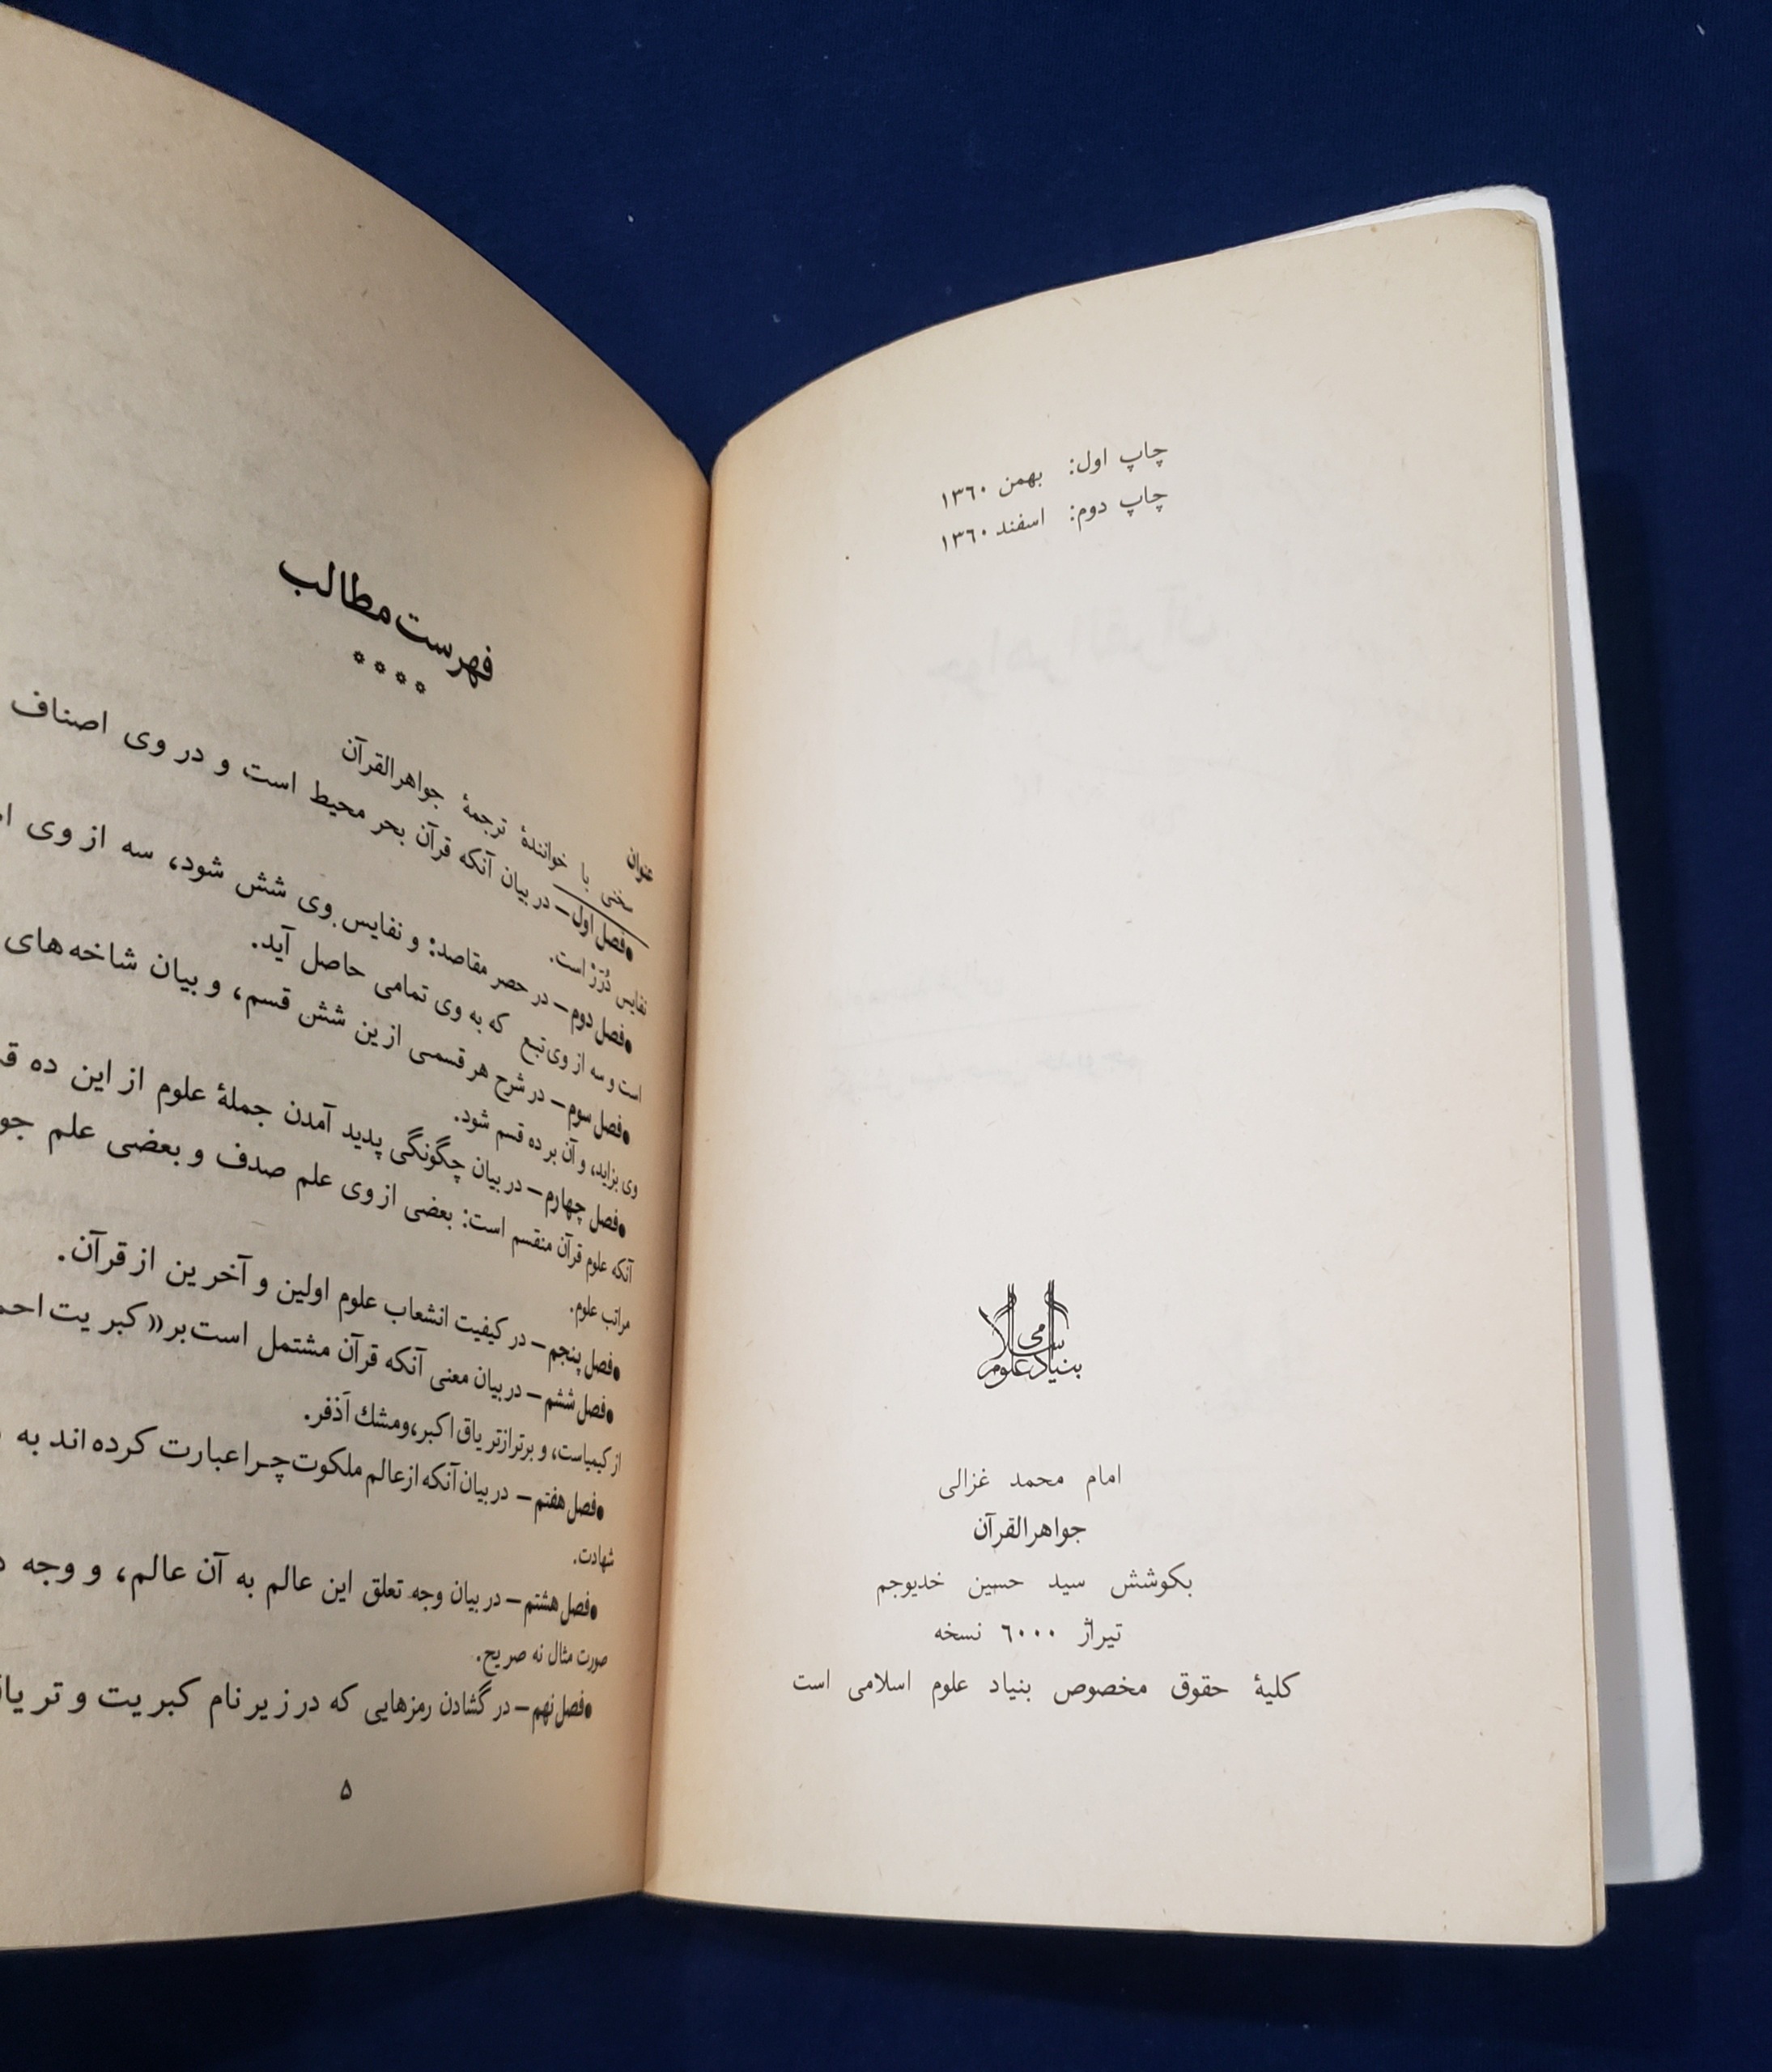 چاپ اول: بهمن ۱۳۶۰
چاپ دوم: اسفند ۱۳۶۰
بنیاد علوم اسلامی
امام محمد غزالی
جواهرالقرآن
بکوشش سید حسین خدیوجم
تیراژ ۶۰۰۰ نسخه
کلیهٔ حقوق مخصوص بنیاد علوم اسلامی است
فهرست مطالب
عنوان
سخنی با خوانندهٔ ترجمهٔ جواهرالقرآن
•فصل اول— در بیان آنکه قرآن بحر محیط است و در وی اصناف
نفایس دُرَرْ است.
•فصل دوم— در حصر مقاصد: و نفایس وی شش شود، سه از وی
است و سه از وی تبع که به وی تمامی حاصل آید.
•فصل سوم— در شرح هر قسمی ازین شش قسم، و بیان شاخه‌های
وی بزاید، و آن بر ده قسم شود.
•فصل چهارم— در بیان چگونگی پدید آمدن جملهٔ علوم از این ده
آنکه علوم قرآن منقسم است: بعضی از وی علم صدف و بعضی علم
مراتب علوم.
•فصل پنجم— در کیفیت انشعاب علوم اولین و آخرین از قرآن.
•فصل ششم— در بیان معنی آنکه قرآن مشتمل است بر «کبریت
از کیمیاست، و برتر از تریاق اکبر، و مشک اَذفر.
•فصل هفتم— در بیان آنکه از عالم ملکوت چرا عبارت کرده‌اند به
شهادت.
•فصل هشتم— در بیان وجه تعلق این عالم به آن عالم، و وجه
صورت مثال نه صریح.
•فصل نهم— در گشادن رمزهایی که در زیر نام کبریت و
۵